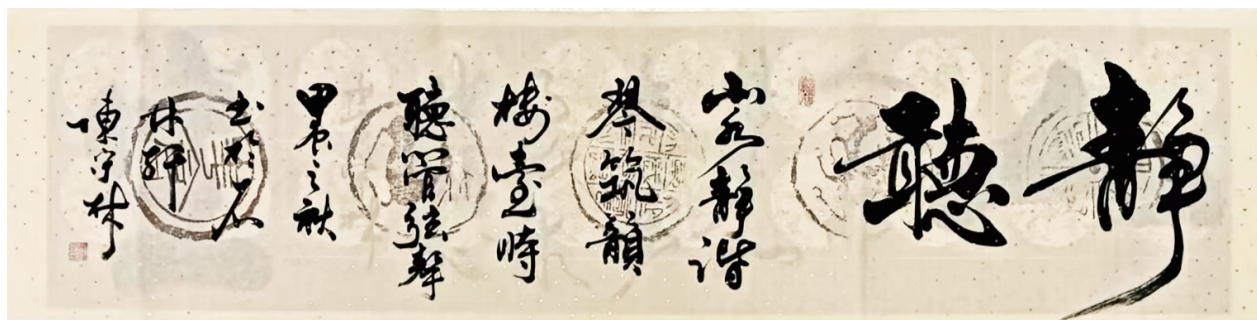 靜聽
山水靜諧
琴筑韻
樓臺時
聽管弦聲
甲辰之秋
書於石
林軒
陳守林